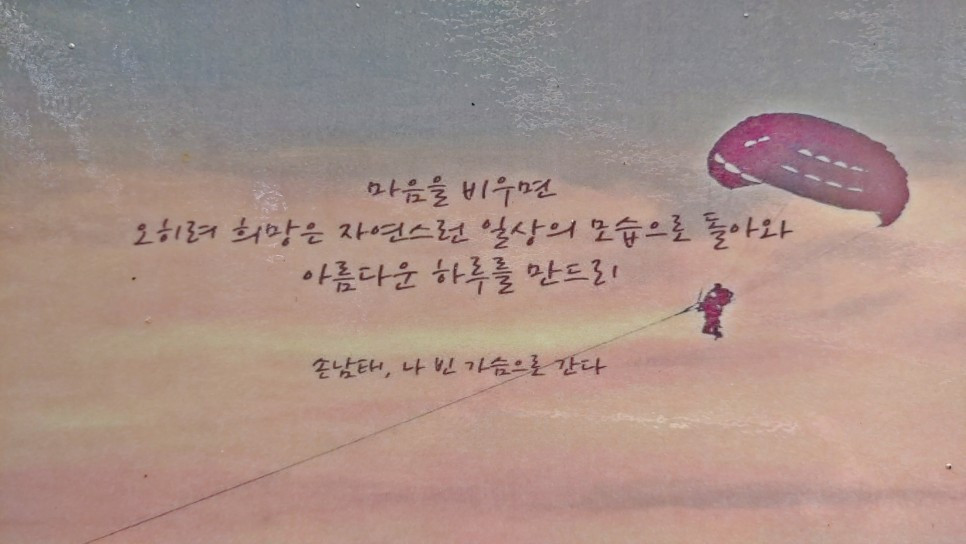 마음을 비우면
오히려 희망은 자연스런 일상의 모습으로 돌아와
아름다운 하루를 만드리
손남태, 나 빈 가슴으로 간다